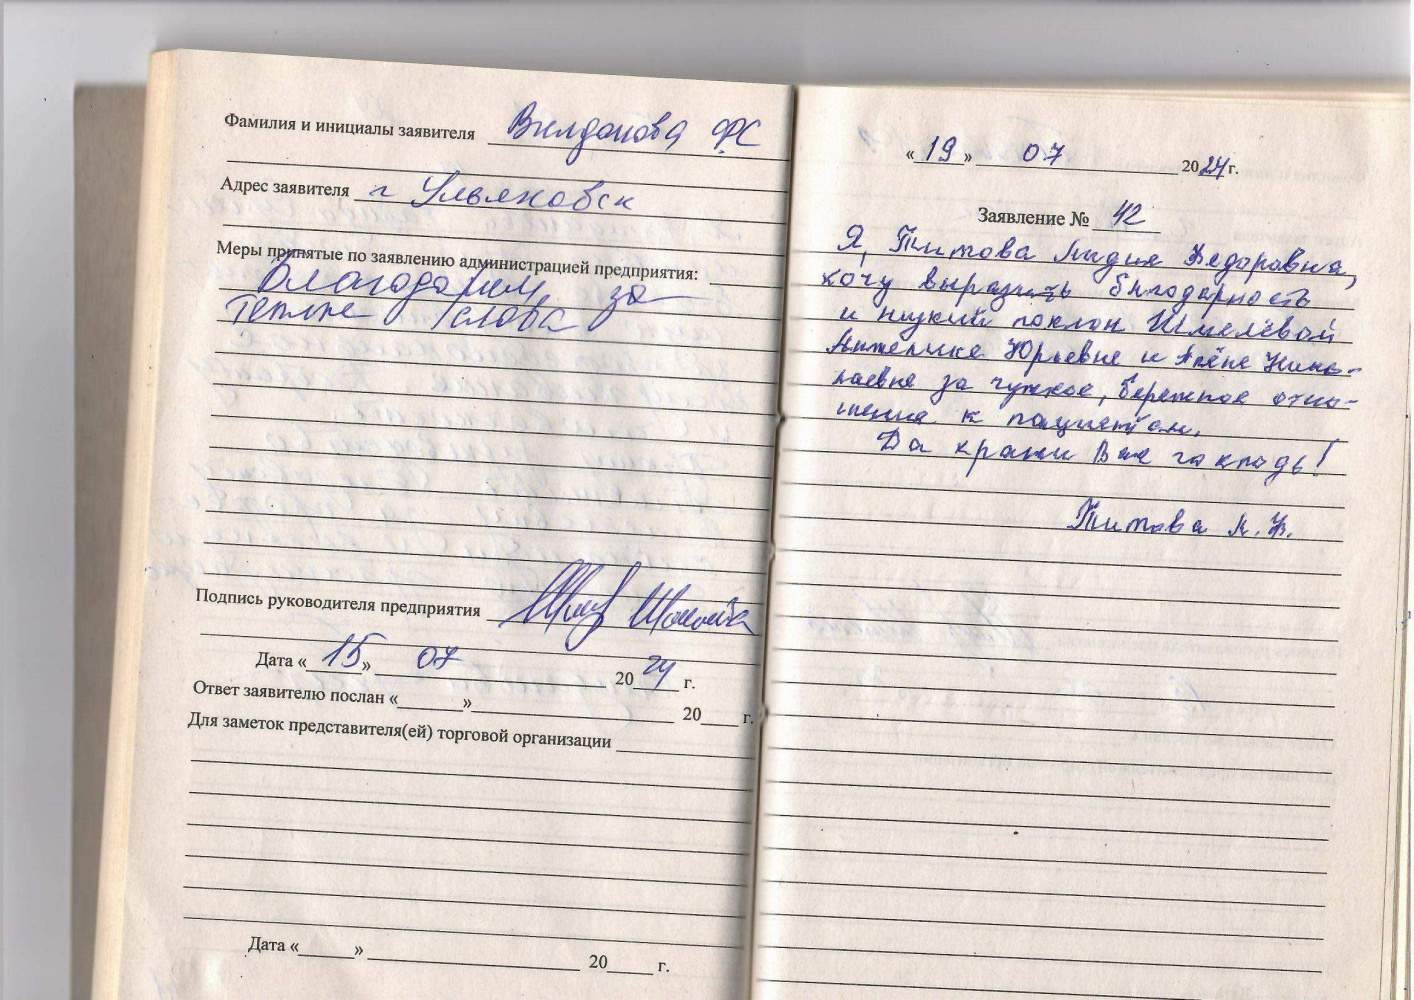 Фамилия и инициалы заявителя Вилданова ФС
Адрес заявителя г Ульяновск
Меры принятые по заявлению администрацией предприятия:
Благодарим за
теплые слова
Подпись руководителя предприятия
Дата « 15 » 07 2024 г.
Ответ заявителю послан «____»____ 20__ г.
Для заметок представителя(ей) торговой организации
Дата «____» ____ 20__ г.
« 19 » 07 2024 г.
Заявление № 42
Я, Титова Лидия Федоровна,
хочу выразить благодарность
и низкий поклон Шмелёвой
Анжелике Юрьевне и Алёне Нико-
лаевне за чуткое, бережное отно-
шение к пациентам.
Да храни Вас господь!
Титова Л. Ф.